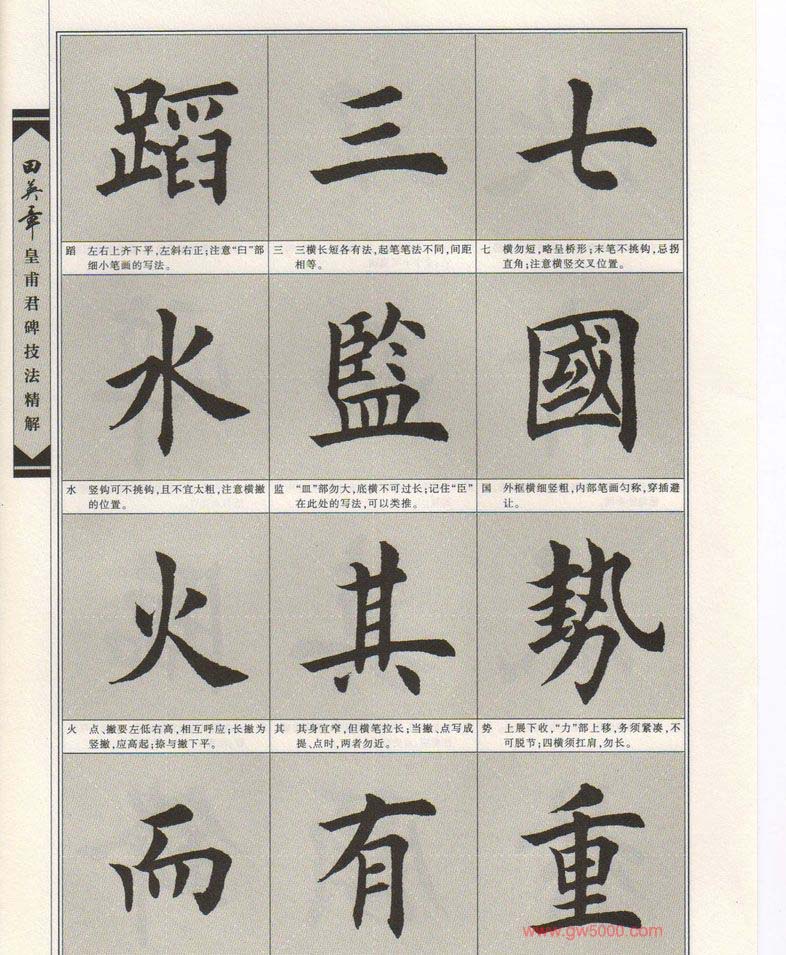 田英章皇甫君碑技法精解
蹈 三 七
蹈 左右上齐下平,左斜右正;注意“臼”部
细小笔画的写法。
三 三横长短各有法,起笔笔法不同,间距
相等。
七 横勿短,略呈桥形;末笔不挑钩,忌拐
直角;注意横竖交叉位置。
水 監 國
水 竖钩可不挑钩,且不宜太粗,注意横撇
的位置。
监 “皿”部勿大,底横不可过长;记住“臣”
在此处的写法,可以类推。
国 外框横细竖粗,内部笔画匀称,穿插避
让。
火 其 势
火 点、撇要左低右高,相互呼应;长撇为
竖撇,应高起;捺与撇下平。
其 其身宜窄,但横笔拉长;当撇、点写成
提、点时,两者勿近。
势 上展下收,“力”部上移,务须紧凑,不
可脱节;四横须扛肩,勿长。
而 有 重
www.gw5000.com